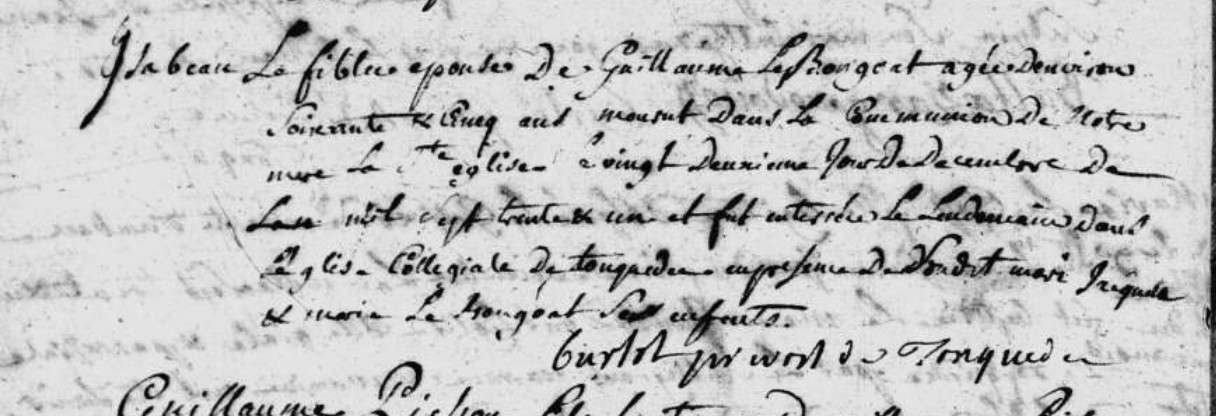 Isabeau Le fiblec epouse De Guillaume Le Rongoat agée Denviron
Soixante & Cinq ans mourut Dans La Communion De Notre
mere La Ste eglise le vingt Deuxieme Jour De Decembre De
Lan mil sept trente & un et fut enterrée Le Lendemain dans
l'eglise Collegiale De tonquedec en presence De Son dit mari Jacques
& marie Le Rongoat Ses enfants.
prevost de Tonquedec
Guillaume